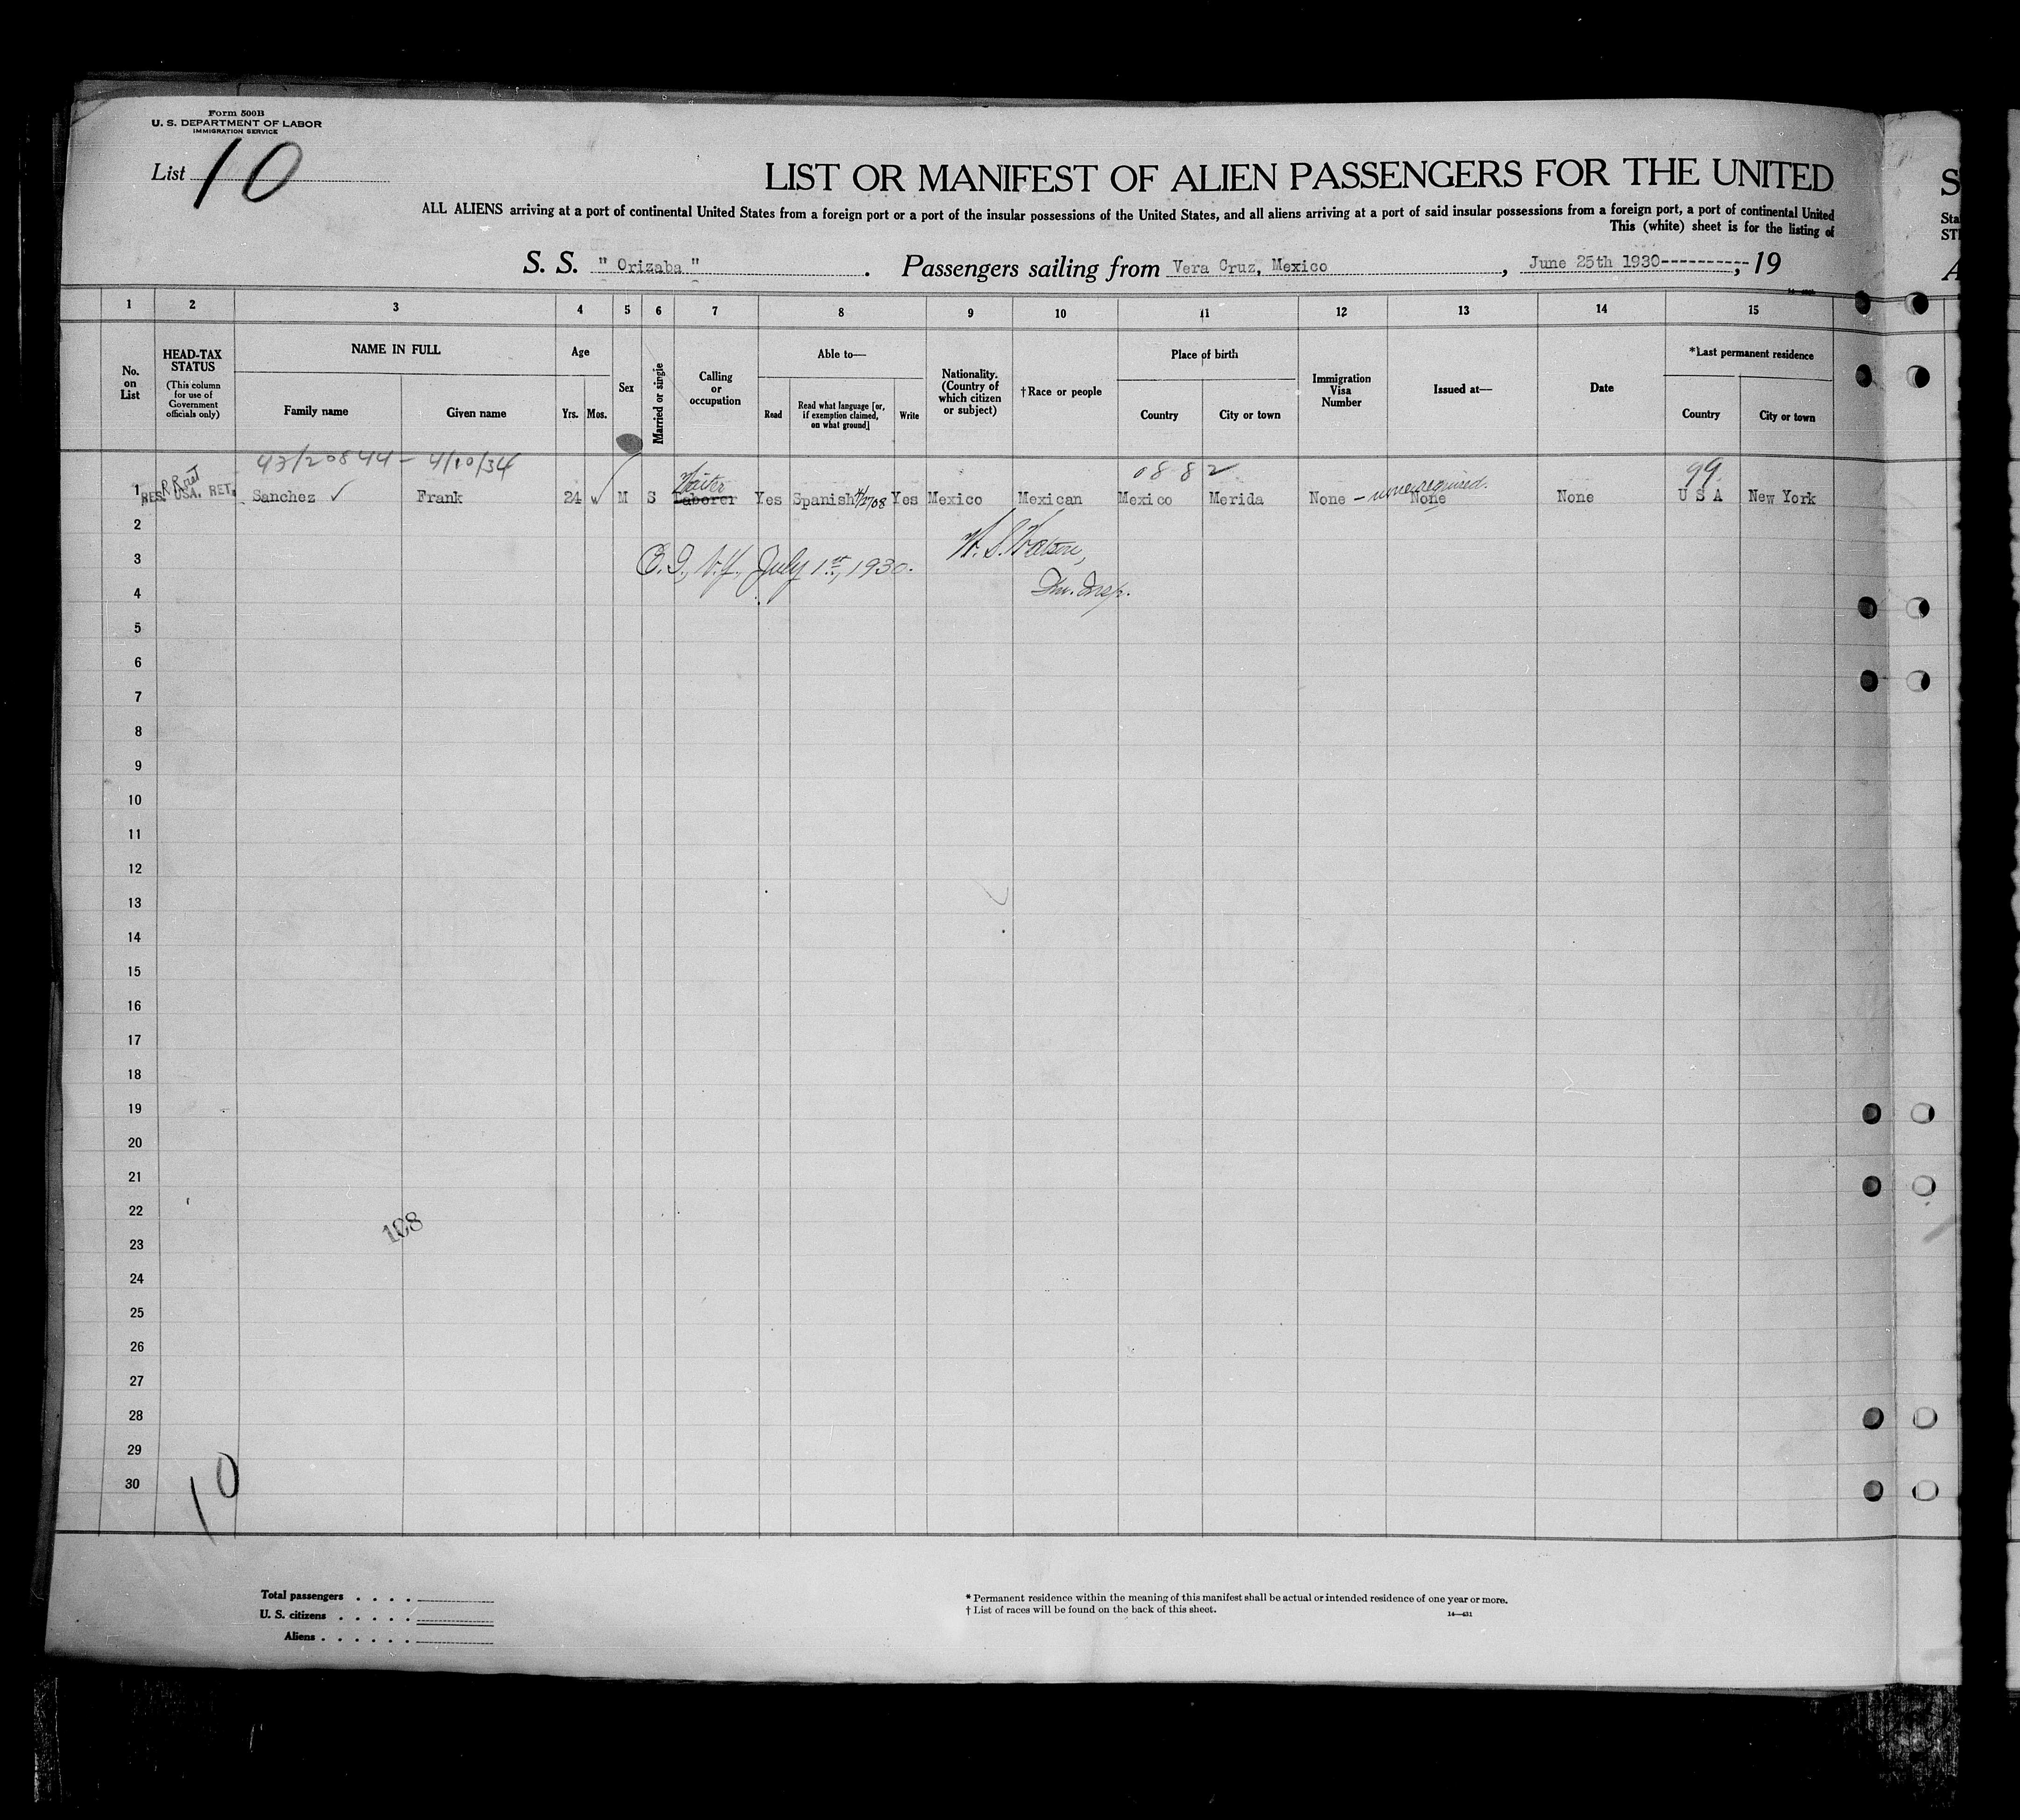 Form 500B
U. S. DEPARTMENT OF LABOR
IMMIGRATION SERVICE
List 10
LIST OR MANIFEST OF ALIEN PASSENGERS FOR THE UNITED
ALL ALIENS arriving at a port of continental United States from a foreign port or a port of the insular possessions of the United States, and all aliens arriving at a port of said insular possessions from a foreign port, a port of continental United
This (white) sheet is for the listing of
S. S. " Orizaba " . Passengers sailing from Vera Cruz, Mexico , June 25th 1930----------, 19
1 2 3 4 5 6 7 8 9 10 11 12 13 14 15
No. on List
HEAD-TAX STATUS (This column for use of Government officials only)
NAME IN FULL
Family name
Given name
Age
Yrs. Mos.
Sex
Married or single
Calling or occupation
Able to—
Read
Read what language [or, if exemption claimed, on what ground]
Write
Nationality. (Country of which citizen or subject)
†Race or people
Place of birth
Country
City or town
Immigration Visa Number
Issued at—
Date
*Last permanent residence
Country
City or town
43/20844 - 4/10/34
0882
99
Waiter
1 RES. USA. RET. Sanchez ✓ Frank 24 M S Laborer Yes Spanish Yes Mexico Mexican Mexico Merida None - none required. None None U S A New York
2
3 July 1st, 1930. W. S. Watson,
4 Imm. Insp.
5
6
7
8
9
10
11
12
13
14
15
16
17
18
19
20
21
22
108
23
24
25
26
27
28
29
30
10
Total passengers . . . .
U. S. citizens . . . . .
Aliens . . . . . .
* Permanent residence within the meaning of this manifest shall be actual or intended residence of one year or more.
† List of races will be found on the back of this sheet.
14—431